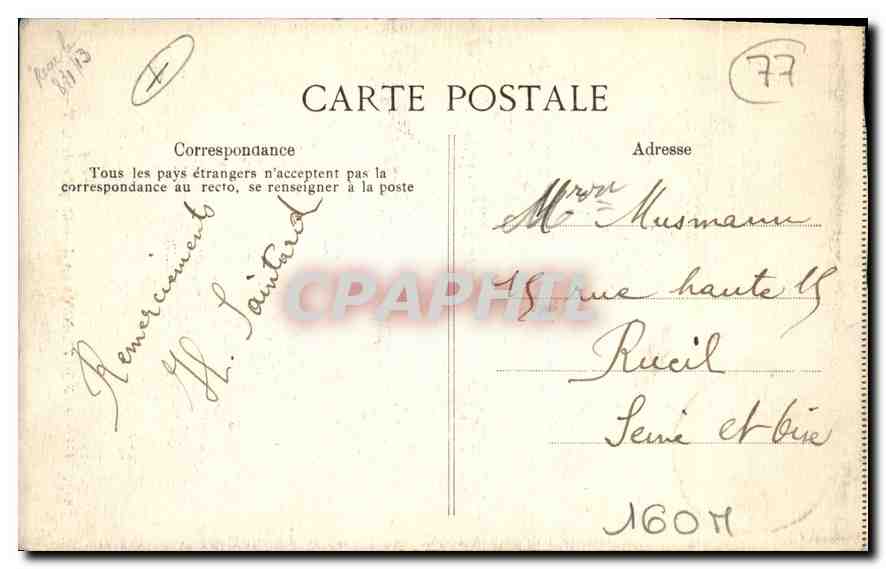 77
CARTE POSTALE
Correspondance
Tous les pays étrangers n'acceptent pas la
correspondance au recto, se renseigner à la poste
Remerciements
H. Saintard
Adresse
Musmann
15 rue haute 15
Rueil
Seine et Oise
160M
CPAPHIL